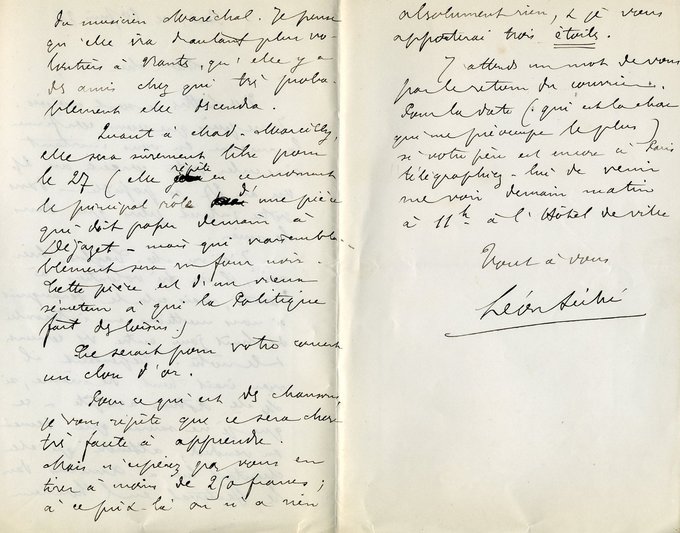 du musicien Maréchal. Je pense
qu'elle ira d'autant plus vo-
lontiers à Nantes, qu'elle y a
des amis chez qui très proba-
blement elle descendra.
Quant à Mad. Marcilly,
elle sera sûrement libre pour
le 27 (elle répète en ce moment
le principal rôle d'une pièce
qui doit passer demain à
Déjazet - mais qui vraisembla-
blement sera un four noir.
Cette pièce est d'un vieux
sénateur à qui la Politique
fait des loisirs!)
Ce serait pour votre concert
un clou d'or.
Pour ce qui est des chansons,
je vous répète que ce sera chose
très facile à apprendre.
Mais n'espérez pas vous en
tirer à moins de 250 francs;
à ce prix-là on n'a rien
absolument rien, & je vous
apporterai trois étoiles.
J'attends un mot de vous
par le retour du courrier.
Pour la date (qui est la chose
qui me préoccupe le plus)
si votre père est encore à Paris
télégraphiez-lui de venir
me voir demain matin
à 11h à l'Hôtel de ville
Tout à vous
Léon